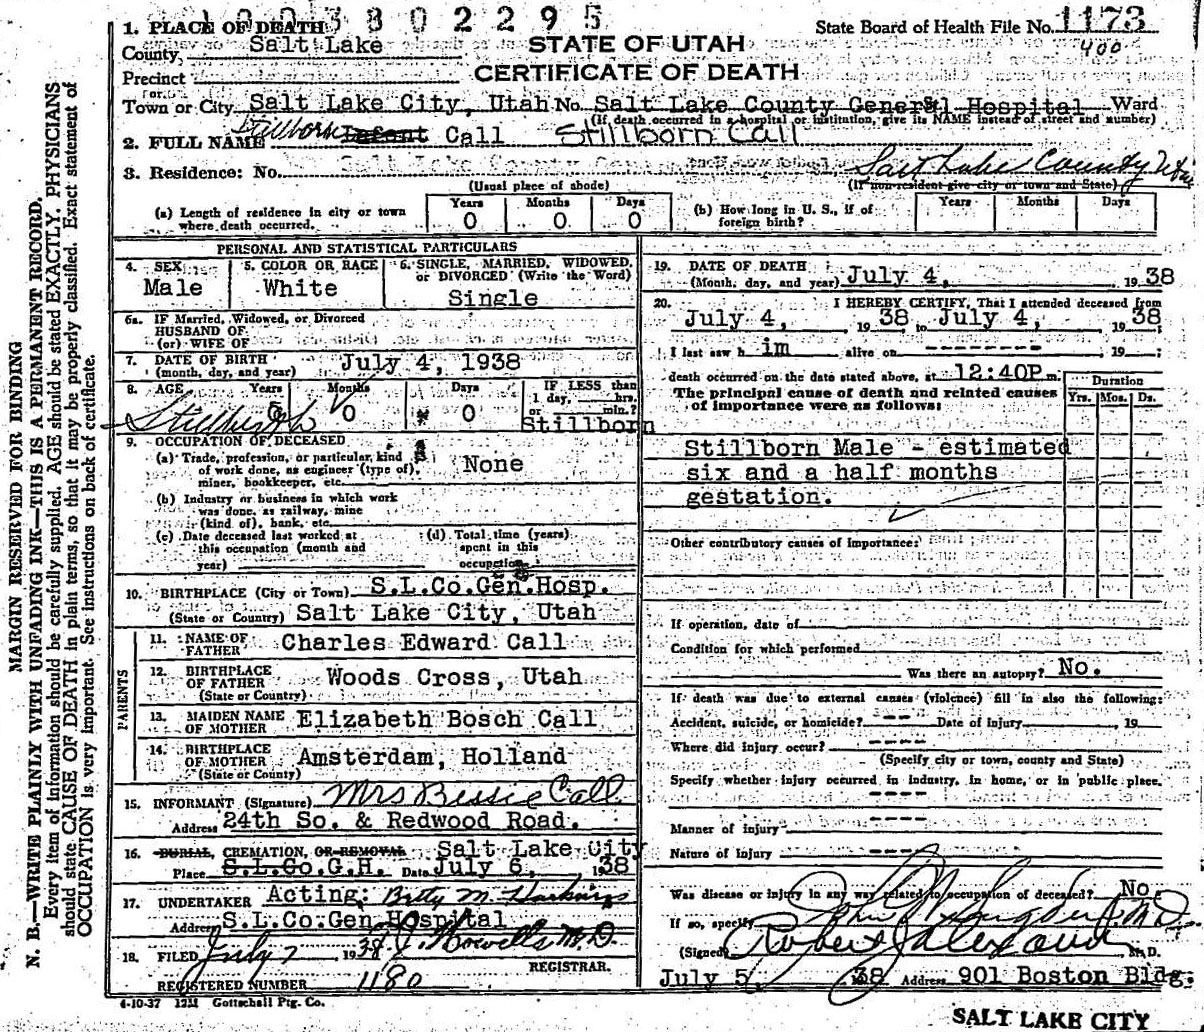 1003802295
1. PLACE OF DEATH
State Board of Health File No. 1173
County, Salt Lake
STATE OF UTAH
400
Precinct
CERTIFICATE OF DEATH
or
Town or City Salt Lake City, Utah No. Salt Lake County General Hospital Ward
(If death occurred in a hospital or institution, give its NAME instead of street and number)
2. FULL NAME Stillborn Infant Call Stillborn Call
3. Residence: No. Salt Lake County Utah
(Usual place of abode) (If non-resident give city or town and State)
(a) Length of residence in city or town where death occurred. Years 0 Months 0 Days 0
(b) How long in U. S., if of foreign birth? Years Months Days
PERSONAL AND STATISTICAL PARTICULARS
4. SEX Male
5. COLOR OR RACE White
6. SINGLE, MARRIED, WIDOWED, or DIVORCED (Write the Word) Single
6a. IF Married, Widowed, or Divorced
HUSBAND OF
(or) WIFE OF
7. DATE OF BIRTH (month, day, and year) July 4, 1938
8. AGE Years 0 Months 0 Days 0 IF LESS than 1 day, hrs. or min.?
Stillbirth Stillborn
9. OCCUPATION OF DECEASED
(a) Trade, profession, or particular, kind
of work done, as engineer (type of), None
miner, bookkeeper, etc.
(b) Industry or business in which work
was done, as railway, mine
(kind of), bank, etc.
(c) Date deceased last worked at
this occupation (month and
year)
(d) Total time (years)
spent in this
occupation
10. BIRTHPLACE (City or Town) S.L.Co.Gen.Hosp.
(State or Country) Salt Lake City, Utah
PARENTS
11. NAME OF FATHER Charles Edward Call
12. BIRTHPLACE OF FATHER (State or Country) Woods Cross, Utah
13. MAIDEN NAME OF MOTHER Elizabeth Bosch Call
14. BIRTHPLACE OF MOTHER (State or County) Amsterdam, Holland
15. INFORMANT (Signature) Mrs Bessie Call
Address 24th So. & Redwood Road.
16. BURIAL, CREMATION, OR REMOVAL Salt Lake City
Place S.L.Co.G.H. Date July 6, 1938
17. UNDERTAKER Acting: Betty M.
Address S.L.Co.Gen Hospital
18. FILED July 7 1938 Howells M.D.
REGISTRAR.
REGISTERED NUMBER 1180
4-10-37 12M Gottschall Ptg. Co.
19. DATE OF DEATH
(Month, day, and year) July 4, 1938
20. I HEREBY CERTIFY, That I attended deceased from
July 4, 1938 to July 4, 1938
I last saw him alive on --------- 19 ;
death occurred on the date stated above, at 12:40P m.
The principal cause of death and related causes
of importance were as follows:
Duration
Yrs. Mos. Ds.
Stillborn Male - estimated
six and a half months
gestation.
Other contributory causes of importance:
If operation, date of
Condition for which performed
Was there an autopsy? No.
If death was due to external causes (violence) fill in also the following:
Accident, suicide, or homicide? --- Date of injury 19
Where did injury occur? ----
(Specify city or town, county and State)
Specify whether injury occurred in industry, in home, or in public place.
----
Manner of injury ----
Nature of injury ----
Was disease or injury in any way related to occupation of deceased? No.
If so, specify John M.D.
(Signed) Robert M.D.
July 5, 38 Address 901 Boston Bldg.
SALT LAKE CITY
MARGIN RESERVED FOR BINDING
N. B.—WRITE PLAINLY WITH UNFADING INK—THIS IS A PERMANENT RECORD.
Every item of information should be carefully supplied. AGE should be stated EXACTLY. PHYSICIANS
should state CAUSE OF DEATH in plain terms, so that it may be properly classified. Exact statement of
OCCUPATION is very important. See instructions on back of certificate.